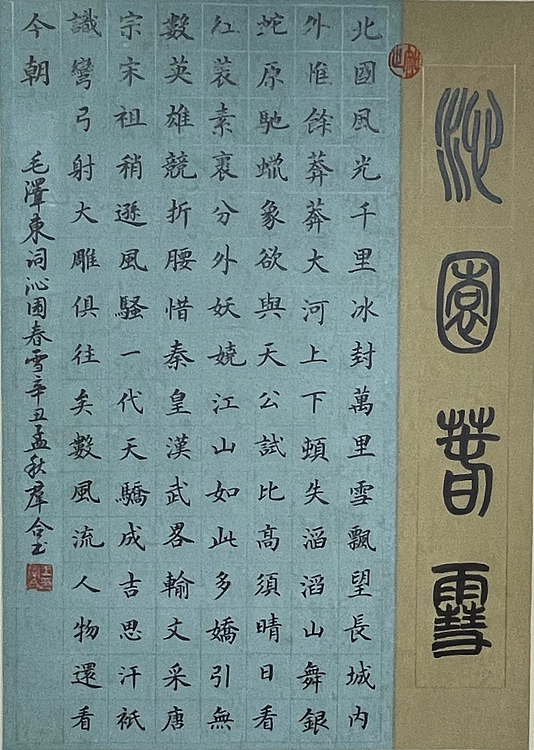 沁園春雪
北國風光千里冰封萬里雪飄望長城内
外惟餘莽莽大河上下頓失滔滔山舞銀
蛇原馳蠟象欲與天公試比高須晴日看
红裝素裹分外妖嬈江山如此多嬌引無
數英雄競折腰惜秦皇漢武畧輸文采唐
宗宋祖稍遜風騷一代天驕成吉思汗祇
識彎弓射大雕俱往矣數風流人物還看
今朝
毛澤東词沁園春雪辛丑孟秋羣合书